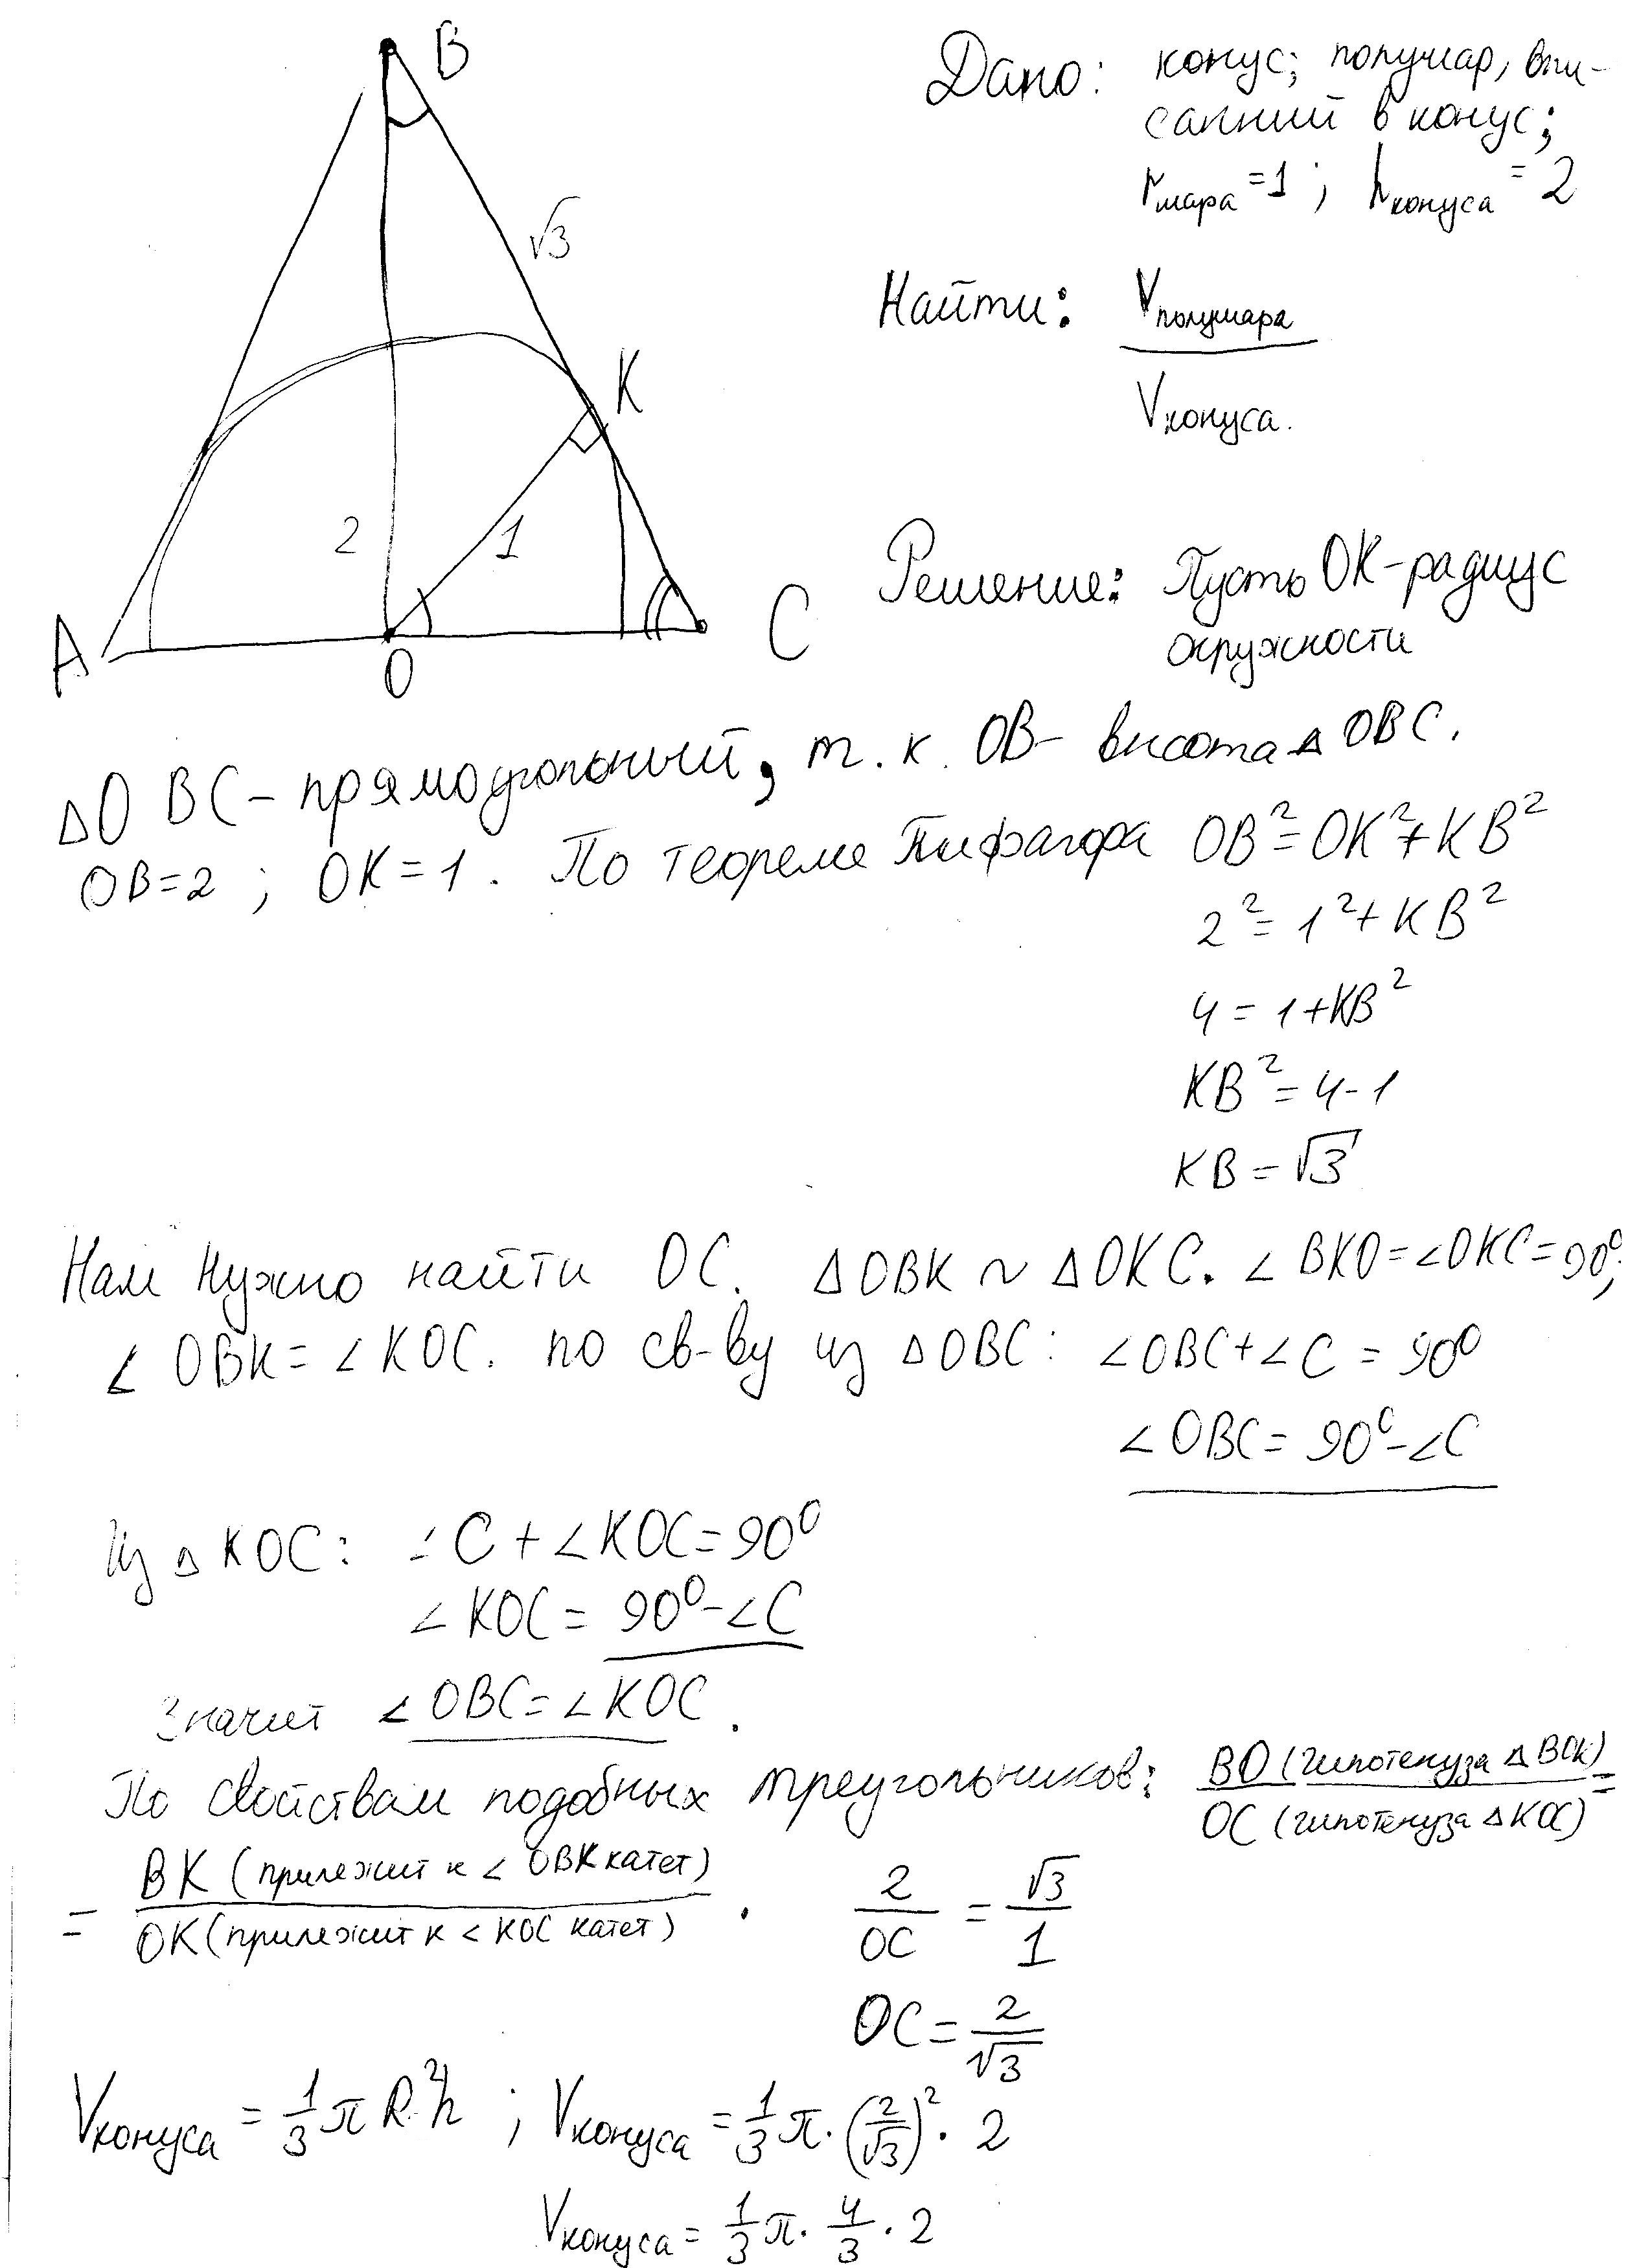 B
Дано: конус; полушар, впи-
санный в конус;
r шара = 1; h конуса = 2
√3
Найти: V полушара
V конуса.
K
2
1
A
O
C
Решение: Пусть OK - радиус
окружности
△OBC - прямоугольный, т.к. OB - высота △OBC.
OB=2; OK=1. По теореме Пифагора OB²=OK²+KB²
2²=1²+KB²
4=1+KB²
KB²=4-1
KB=√3
Нам нужно найти OC. △OBK ~ △OKC. ∠BKO=∠OKC=90°;
∠OBK=∠KOC. по св-ву из △OBC: ∠OBC+∠C=90°
∠OBC=90°-∠C
Из △KOC: ∠C+∠KOC=90°
∠KOC=90°-∠C
Значит ∠OBC=∠KOC.
По свойствам подобных треугольников: BO (гипотенуза △BOK) / OC (гипотенуза △KOC) =
= BK (прилежит к ∠OBK катет) / OK (прилежит к ∠KOC катет). 2/OC = √3/1
OC = 2/√3
V конуса = 1/3 πR²h; V конуса = 1/3 π·(2/√3)²·2
V конуса = 1/3 π·4/3·2